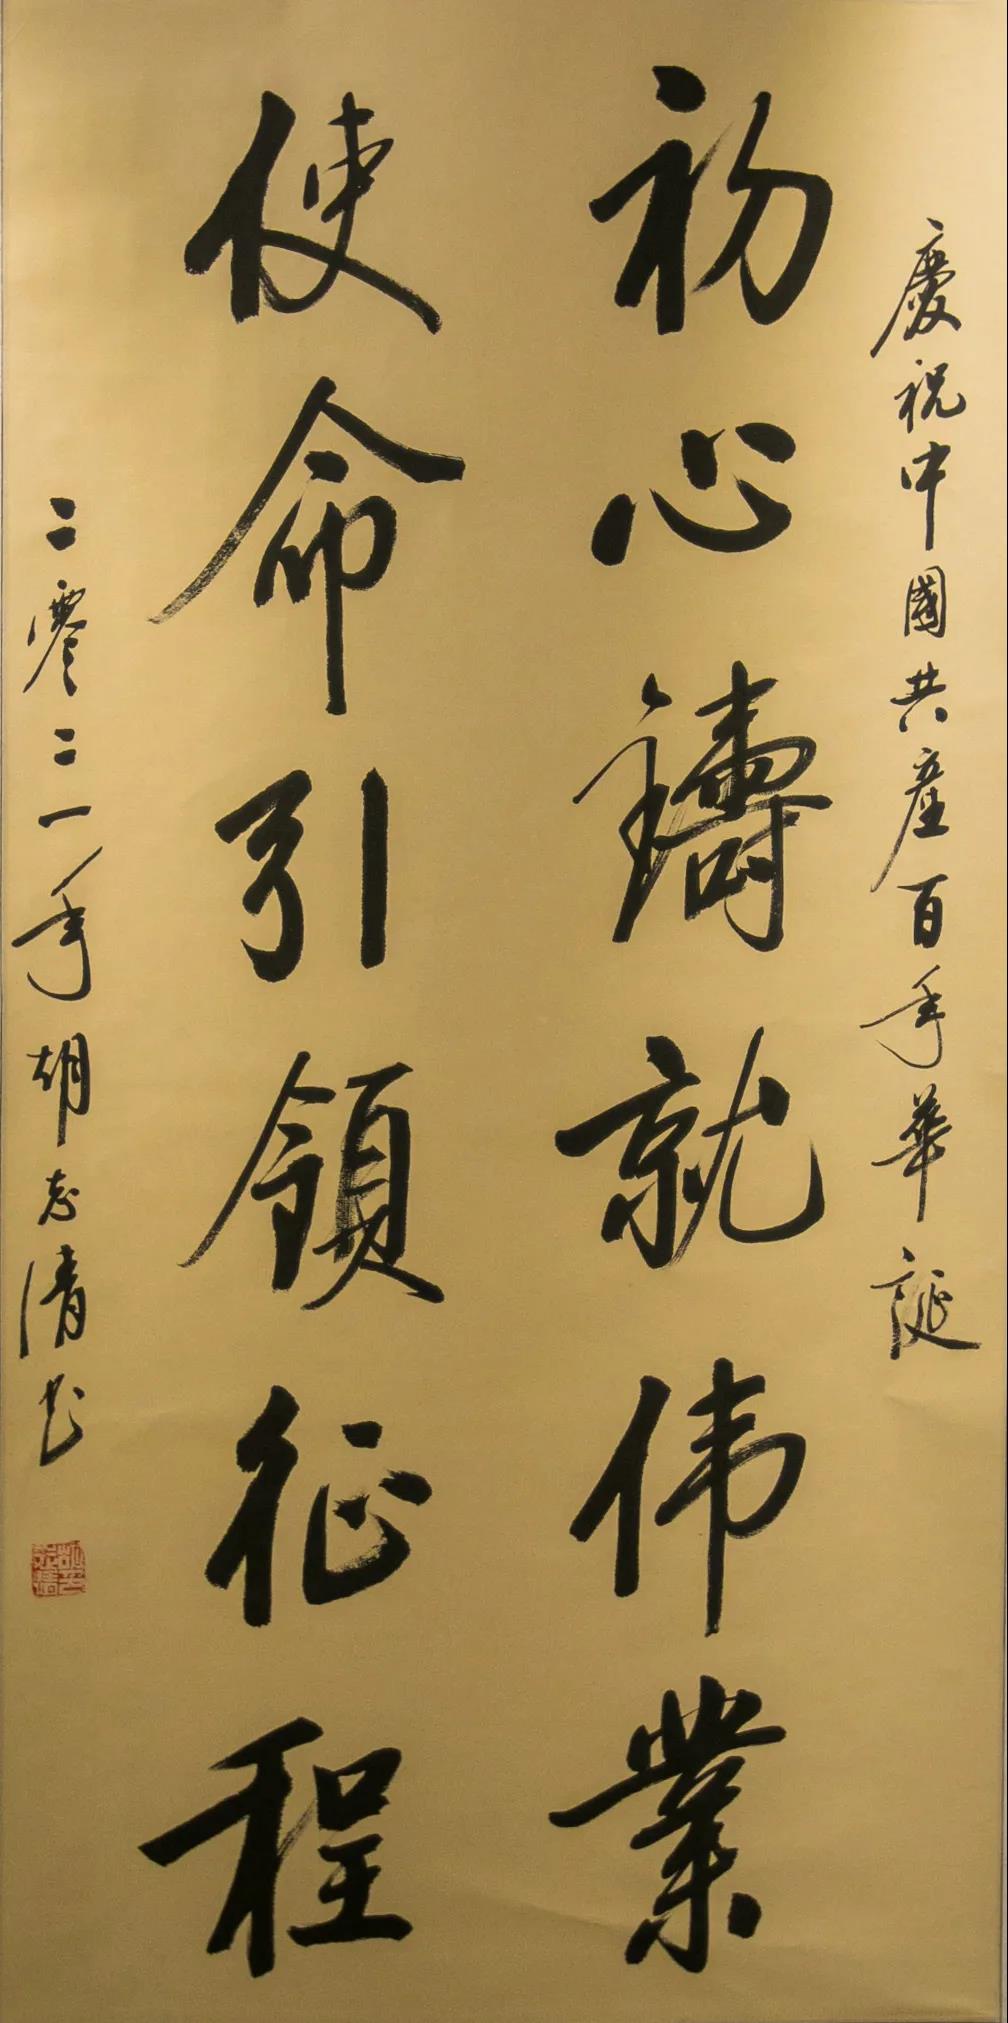 慶祝中國共産百年華誕
初心鑄就伟業
使命引領征程
二零二一年胡志清书